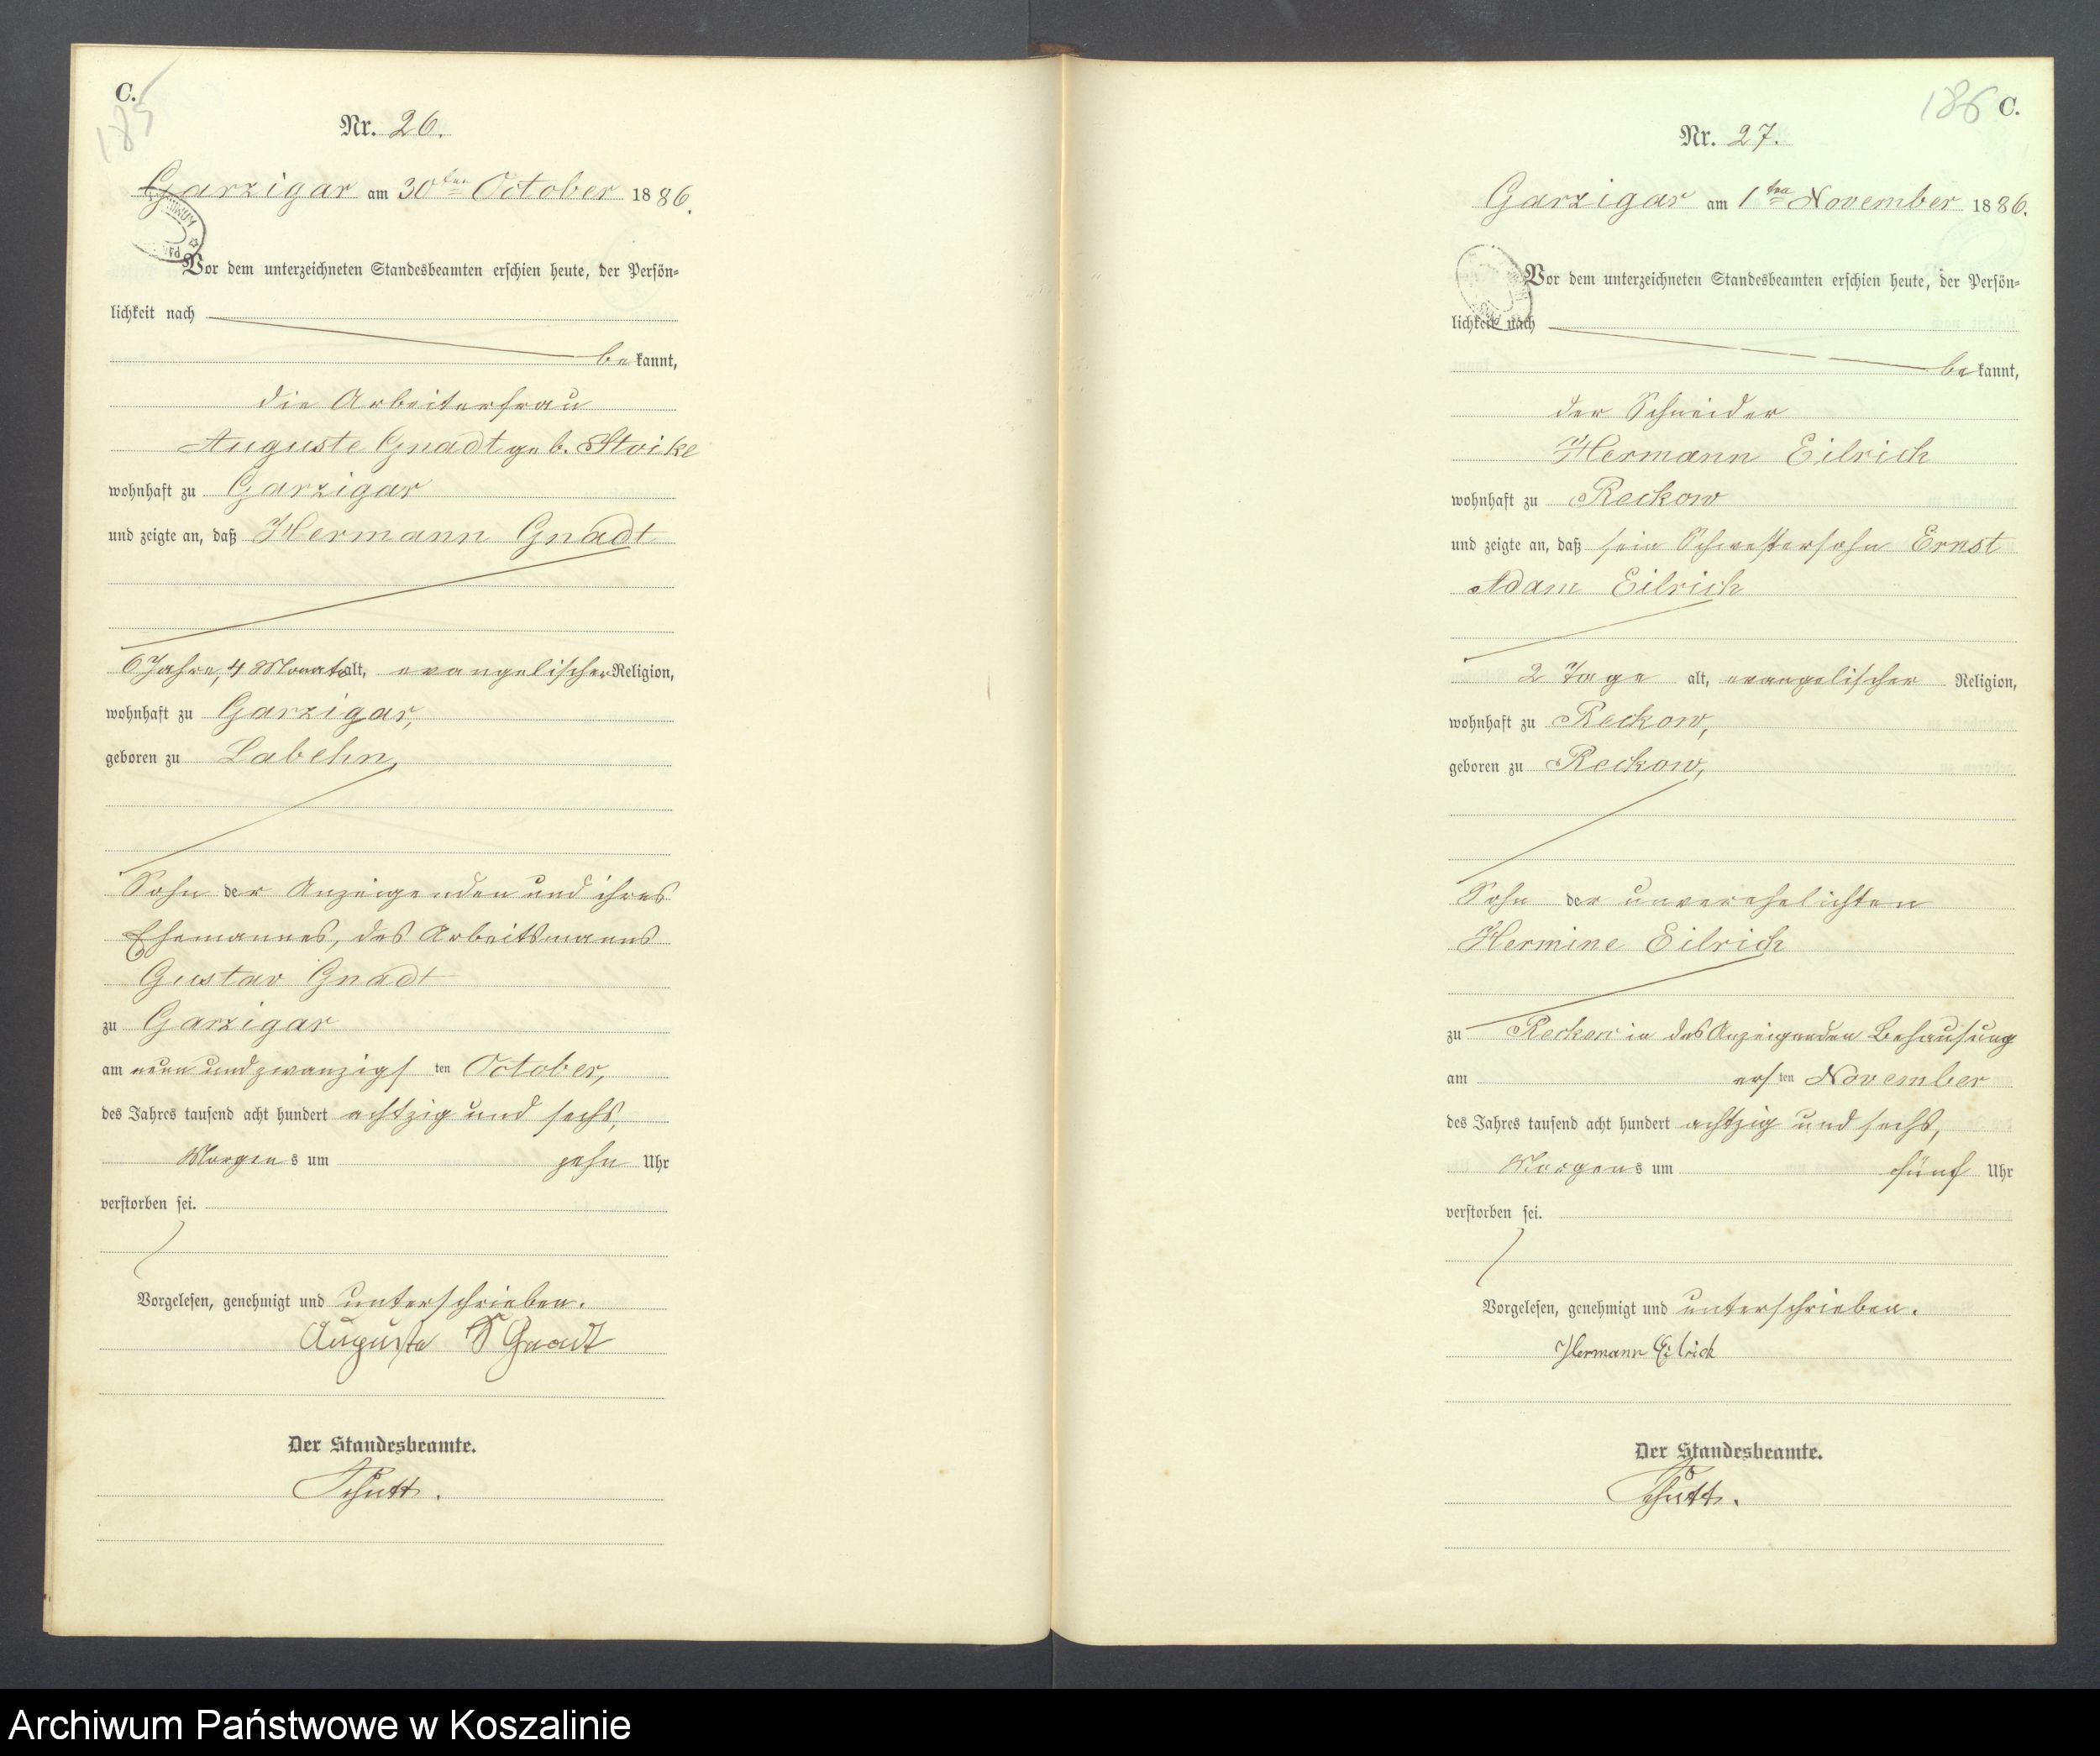 C.
185
Nr. 26.
Garzigar am 30ten October 1886.
Vor dem unterzeichneten Standesbeamten erschien heute, der Persön=
lichkeit nach
bekannt,
die Arbeiterfrau
Auguste Gnadt geb. Stoike
wohnhaft zu Garzigar
und zeigte an, daß Hermann Gnadt
6 Jahre, 4 Monate alt, evangelischer Religion,
wohnhaft zu Garzigar,
geboren zu Labehn,
Sohn der Anzeigenden und ihres
Ehemannes, des Arbeitsmanns
Gustav Gnadt
zu Garzigar
am neun und zwanzigsten October,
des Jahres tausend acht hundert achtzig und sechs,
Morgens um zehn Uhr
verstorben sei.
Vorgelesen, genehmigt und unterschrieben.
Auguste Gnadt
Der Standesbeamte.
Schütt.
186 C.
Nr. 27.
Garzigar am 1ten November 1886.
Vor dem unterzeichneten Standesbeamten erschien heute, der Persön=
lichkeit nach
bekannt,
der Schneider
Hermann Eilrich
wohnhaft zu Reckow
und zeigte an, daß sein Schwestersohn Ernst
Adam Eilrich
2 Tage alt, evangelischer Religion,
wohnhaft zu Reckow,
geboren zu Reckow,
Sohn der unverehelichten
Hermine Eilrich
zu Reckow in des Anzeigenden Behausung
am ersten November
des Jahres tausend acht hundert achtzig und sechs,
Morgens um fünf Uhr
verstorben sei.
Vorgelesen, genehmigt und unterschrieben.
Hermann Eilrich
Der Standesbeamte.
Schütt.
Archiwum Państwowe w Koszalinie